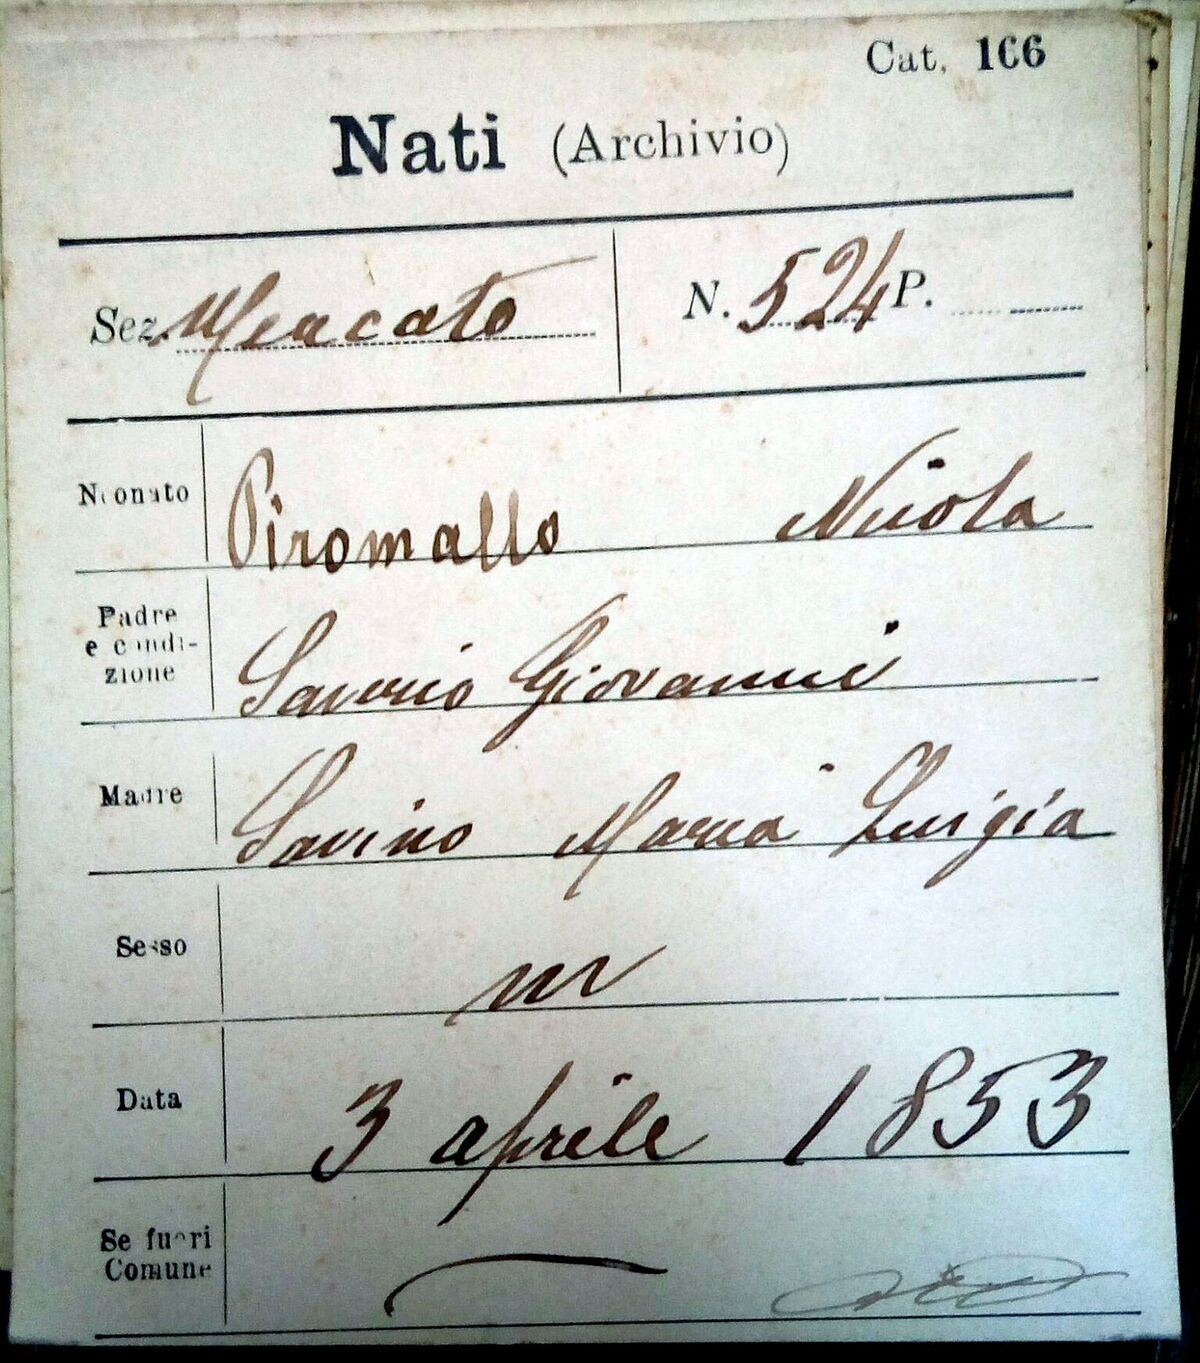 Cat. 166
Nati (Archivio)
Sez. Mercato N. 524 P.
Neonato Piromallo Nicola
Padre
e condi-
zione
Saverio Giovanni
Madre Savino Maria Luigia
Sesso m
Data 3 aprile 1853
Se fuori
Comune